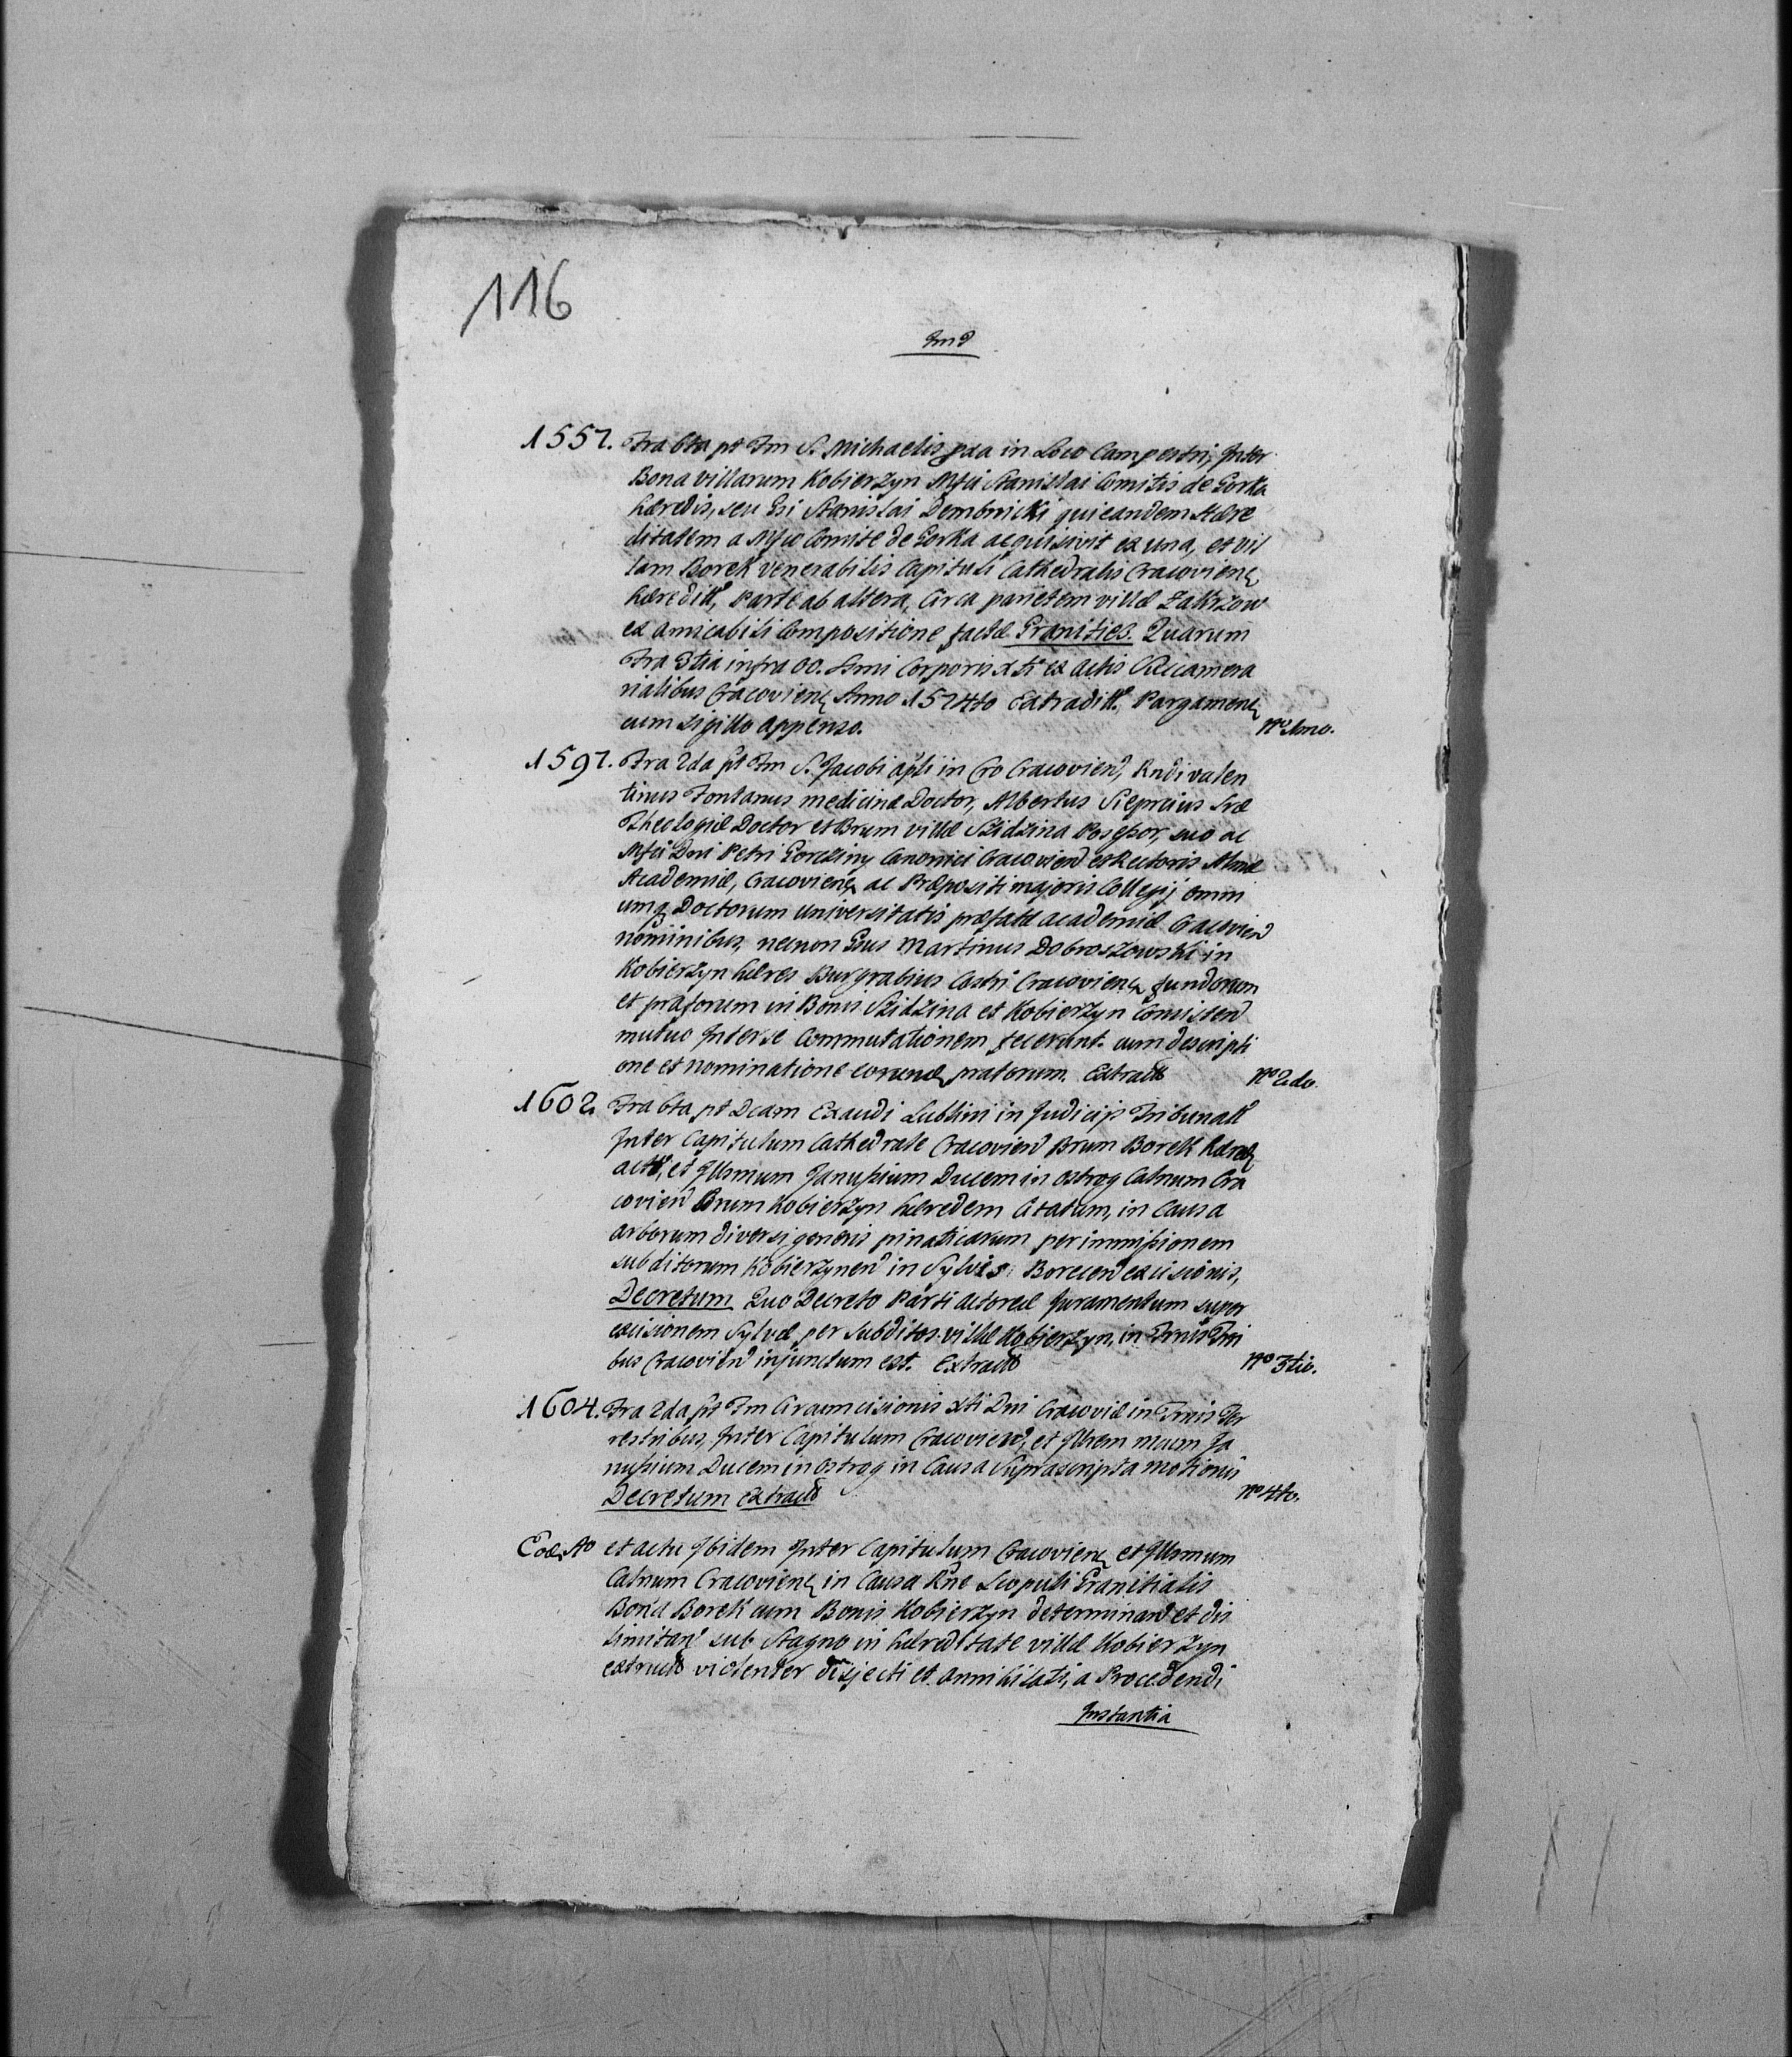 116
Jmd
1557. Fra 6ta pt Fm S. Michaelis pxa in Loco Campestri, Inter
Bona villarum Kobierzyn Mfci Stanislai Comitis de Gorka
hæredis, seu Gsi Stanislai Dembnicki qui eandem Hære
ditatem a Mfco Comite de Gorka acquisivit ex una, et vil
lam Borek venerabilis Capituli Cathedralis Cracovien
hæreditt, Parte ab altera, Circa parietem villæ Zakrzow
ex amicabili Compositione factæ Granities. Quarum
Fra 3tia infra 00. Ssmi Corporis xti ex Actis Succamera
rialibus Cracovien Anno 1574to Extraditt. Pargamen
cum sigillo appenso. No 1mo.
1597. Fra 2da pt Fm S. Jacobi apli in Cro Cracovien, Rndi valen
tinus Fontanus medicinæ Doctor, Albertus Sieprcius Sræ
Theologiæ Doctor et Brum villæ Szidzina Possessor, suo ac
Mfci Dni Petri Gorcziny Canonici Cracovien et Rectoris Almæ
Academiæ, Cracovien ac Præpositi majoris Collegij omni
umq Doctorum Universitatis præfatæ academiæ Cracovien
nominibus, necnon Gsus Martinus Dobroszowski in
Kobierzyn hæres Burgrabius Castri Cracovien fundorum
et pratorum in Bonis Szidzina et Kobierzyn Consisten
mutuo Inter se Commutationem fecerunt. cum descripti
one et nominatione eorund pratorum. Extractt No 2do.
1602. Fra 6ta pt Dcam Exaudi Lublini in Judicijs Tribunall
Inter Capitulum Cathedrale Cracovien Brum Borek hæred
actt, et Illmum Janussium Ducem in Ostrog Catnum Cra
covien Brum Kobierzyn hæredem Citatum, in Causa
arborum diversi generis pinaticarum per immissionem
subditorum Kobierzynen in Sylvis Borecen excisionis,
Decretum Quo Decreto Parti actoreæ Juramentum super
excisionem Sylvæ per subditos villæ Kobierzyn, in Trnis Tri
bus Cracovien injunctum est. Extractt No 3tio.
1604. Fra 2da pt Fm Circumcisionis xti Dni Cracoviæ in Trnis Ter
restribus, Inter Capitulum Cracovien, et Illrem mcum Ja
nussium Ducem in Ostrog in Causa Suprascripta motionis
Decretum extractt No 4to.
Eod Ao et actu Ibidem Inter Capitulum Cracovien et Illmum
Catnum Cracovien in Causa Rne Scopuli Granitialis
Bona Borek cum Bonis Kobierzyn determinan et dis
limitan sub Stagno in hæreditate villæ Kobierzyn
extructo violenter disjecti et annihilati, a Procedendi
Instantia